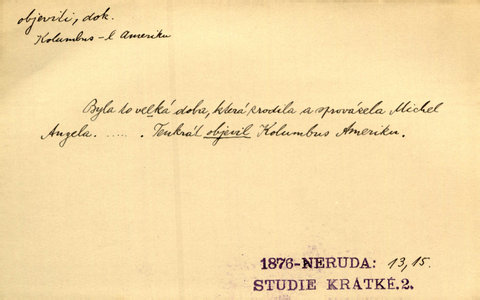 objeviti, dok.
Kolumbus -l Ameriku
Byla to velká doba, která zrodila a sprovázela Michel
Angela. . . . . . Tenkrát objevil Kolumbus Ameriku.
1876-NERUDA: 13,15.
STUDIE KRÁTKÉ.2.